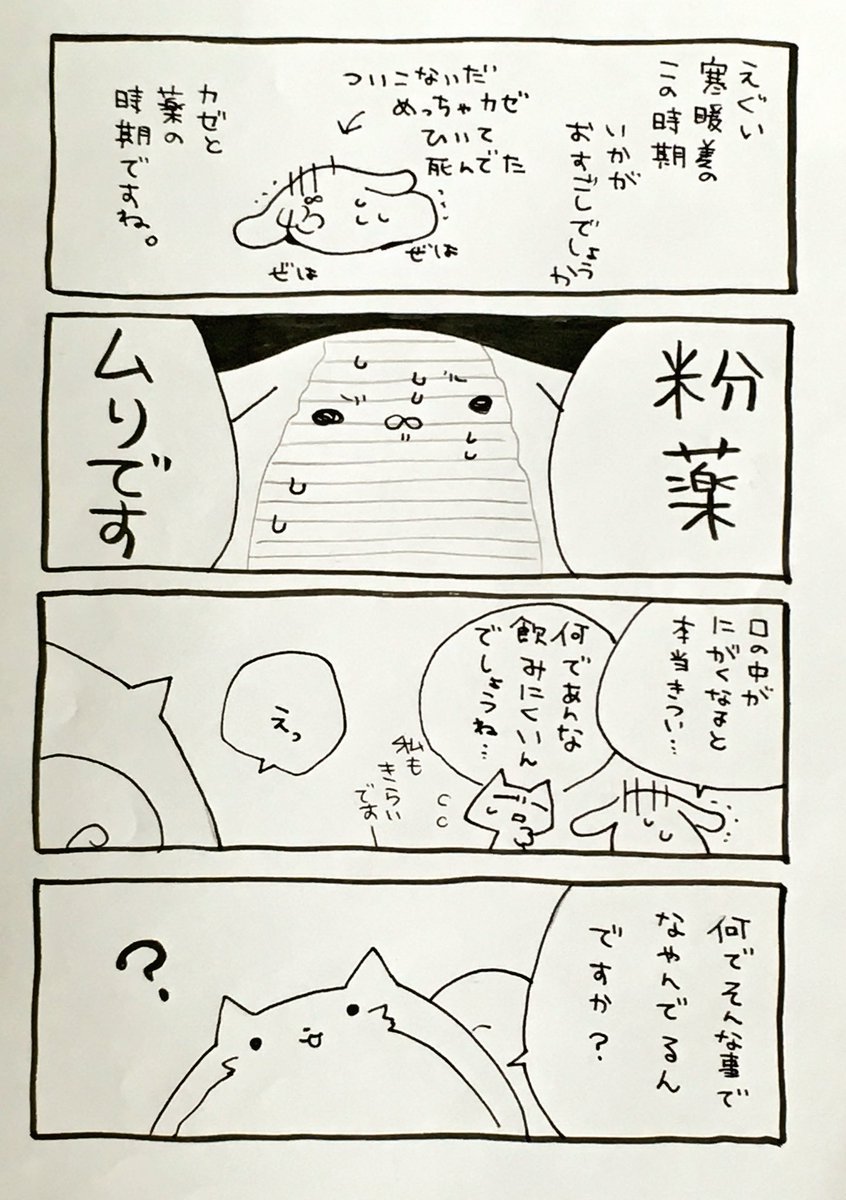 えぐい
寒暖差の
この時期
いかが
おすごしでしょうか
ついこないだ
めっちゃカゼ
ひいて
死んでた
ぜは
ぜは
カゼと
薬の
時期ですね。
粉薬
ムリです
口の中が
にがくなると
本当きつい…
何であんな
飲みにくいん
でしょうね…
私も
きらい
です
えっ
何でそんな事で
なやんでるん
ですか？
？